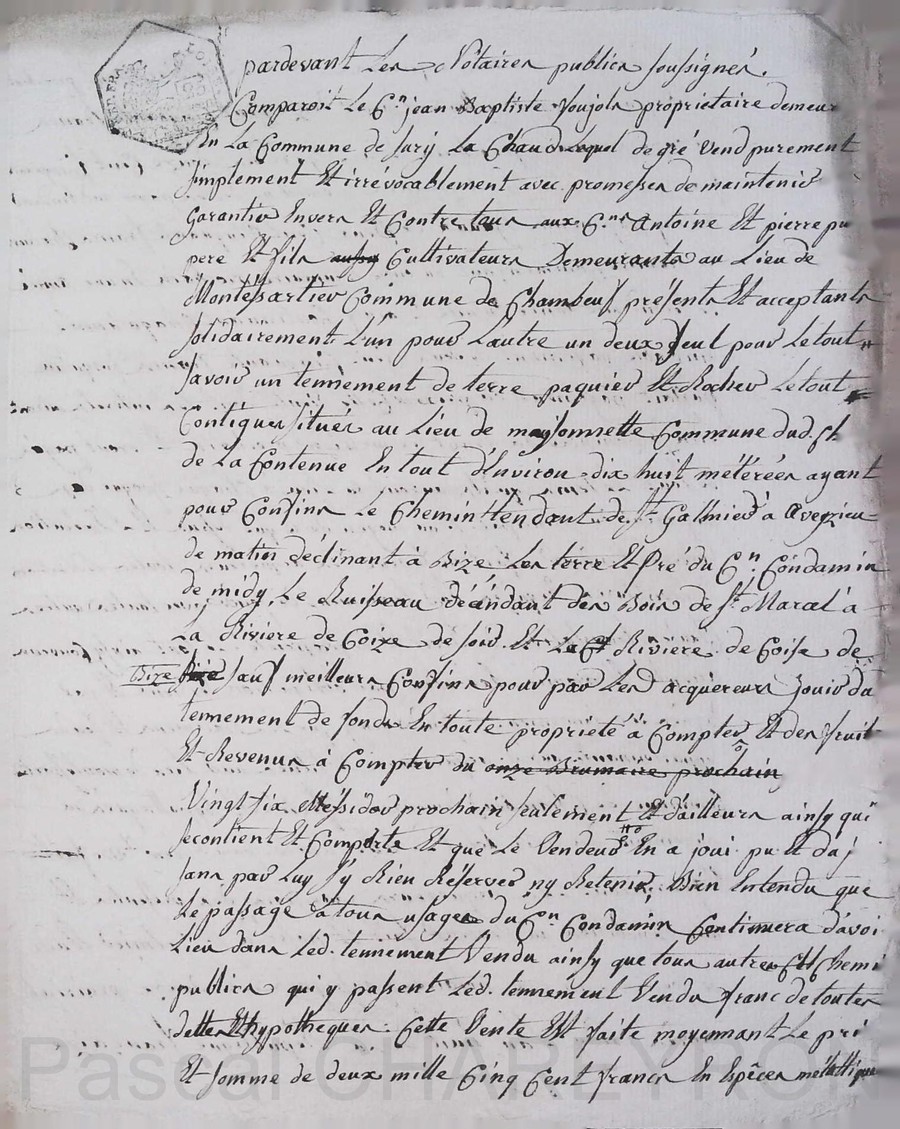 pardevant Les Notaires publics soussignés.
Comparoit Le C.n jean Baptiste Soujols propriétaire demeur
En La Commune de Sury La Chaud Lequel de gré vend purement
simplement Et irrévocablement avec promesses de maintenir
Garantir Envers Et Contre tous aux C.ns Antoine Et pierre pu
pere Et fils aussy Cultivateurs Demeurants au Lieu de
Montessartier Commune de Chambeuf présents Et acceptants
solidairement L'un pour L'autre un deux seul pour Le tout
savoir un tennement de terre paquier Et Rocher Le tout
Contigues situés au Lieu de maysonnette Commune dud. St
de La Contenue En tout d'Environ dix huit métérées ayant
pour Confins Le Chemin tendant de St Galmier à aveyzieu
de matin déclinant à Bize Les terre Et Pré du C.n Condamin
de midy, Le Ruisseau décendant des Bois de St Maral à
La Riviere de Coize de soir Et La Riviere de Coise de
Bize sauf meilleurs Confins pour par Lesd acquereurs jouir du
tennement de fonds En toute propriété à Compter Et des fruit
Et Revenus à Compter du onze Brumaire prochain
Vingt six Messidor prochain seulement Et d'ailleurs ainsy qu'i
se contient Et Comporte Et que Le Vendeur En a joui pu Et du j
sans par Luy s'y Rien Réserver ny Retenir. Bien Entendu que
Le passage à tous usages du C.n Condamin Continuera d'avoi
Lieu dans Led. tennement Vendu ainsy que tous autres Chemi
publics qui y passent Led. tennement Vendu franc de toutes
dettes Et hypotheques. Cette Vente Est faite moyennant Le pri
Et somme de deux mille Cinq Cent francs En Espêces métallique
Pascal CHARLEYRON